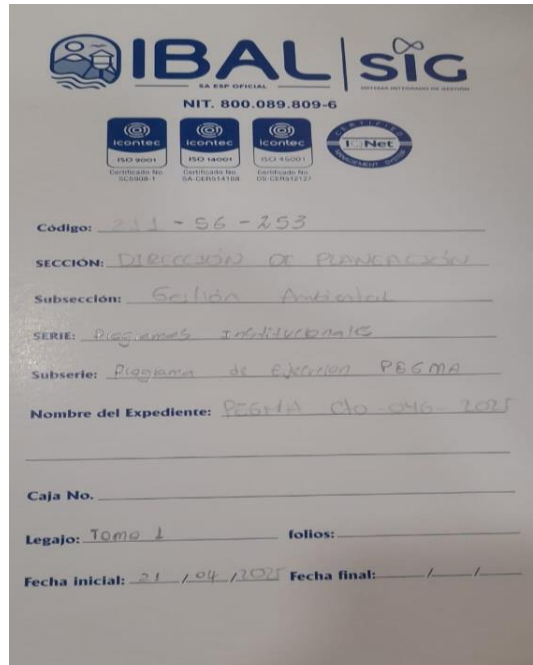 IBAL
SA ESP OFICIAL
SIG
SISTEMA INTEGRADO DE GESTIÓN
NIT. 800.089.809-6
icontec icontec icontec
ISO 9001 ISO 14001 ISO 45001
Certificado No. Certificado No. Certificado No.
SC5908-1 SA-CER514168 OS-CER512127
CERTIFIED
IQNet
MANAGEMENT SYSTEM
Código: 211-56-253
SECCIÓN: DIRECCIÓN DE PLANEACIÓN
Subsección: Gestión Ambiental
SERIE: Programas Institucionales
Subserie: Programa de Ejecucion PEGMA
Nombre del Expediente: PEGMA Cto-046-2025
Caja No.
Legajo: Tomo 1 folios:
Fecha inicial: 21/04/2025 Fecha final: / /